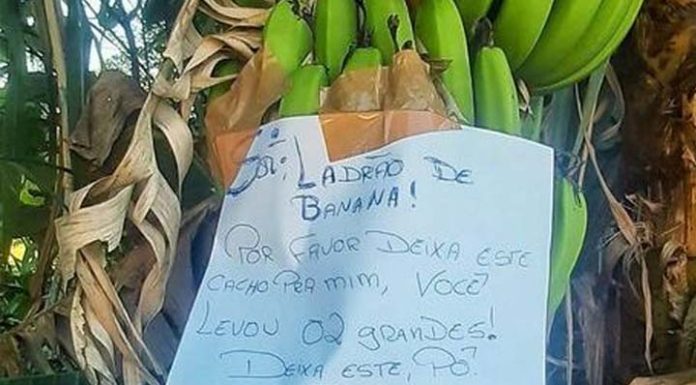 Sr.ª: LADRÃO DE
BANANA!
POR FAVOR DEIXA ESTE
CACHO PRA MIM, VOCÊ
LEVOU 02 GRANDES!
DEIXA ESTE, PÔ!